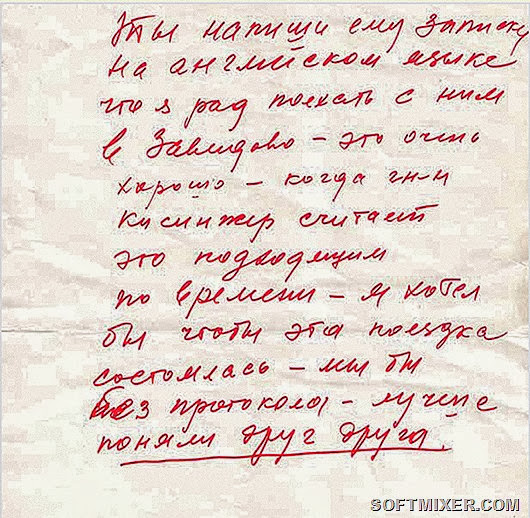 Ты напиши ему записку
на английском языке
что я рад поехать с ним
в Завидово – это очень
хорошо – когда г-н
Кисинжер считает
это подходящим
по времени – я хотел
бы чтобы эта поездка
состоялась – мы бы
без протокола – лучше
поняли друг друга.
SOFTMIXER.COM